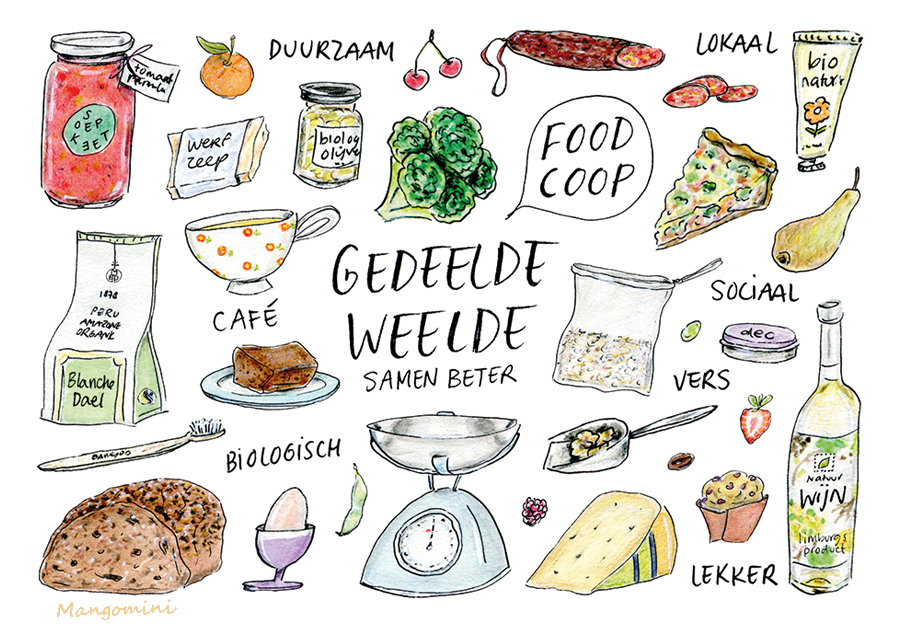 DUURZAAM
LOKAAL
tomaat
SOEP
KEET
bio
natuur
werf
zeep
biolog
olijve
FOOD
COOP
GEDEELDE
WEELDE
SAMEN BETER
1878
PERU
AMAZONE
ORGANIC
Blanche
Dael
CAFÉ
SOCIAAL
deo
VERS
BIOLOGISCH
natuur
WIJN
limburgs
product
LEKKER
Mangomini